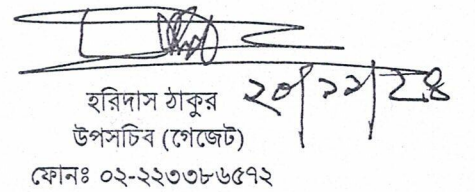 হরিদাস ঠাকুর ২০/১১/২৪
উপসচিব (গেজেট)
ফোনঃ ০২-২২৩৩৮৬৫৭২